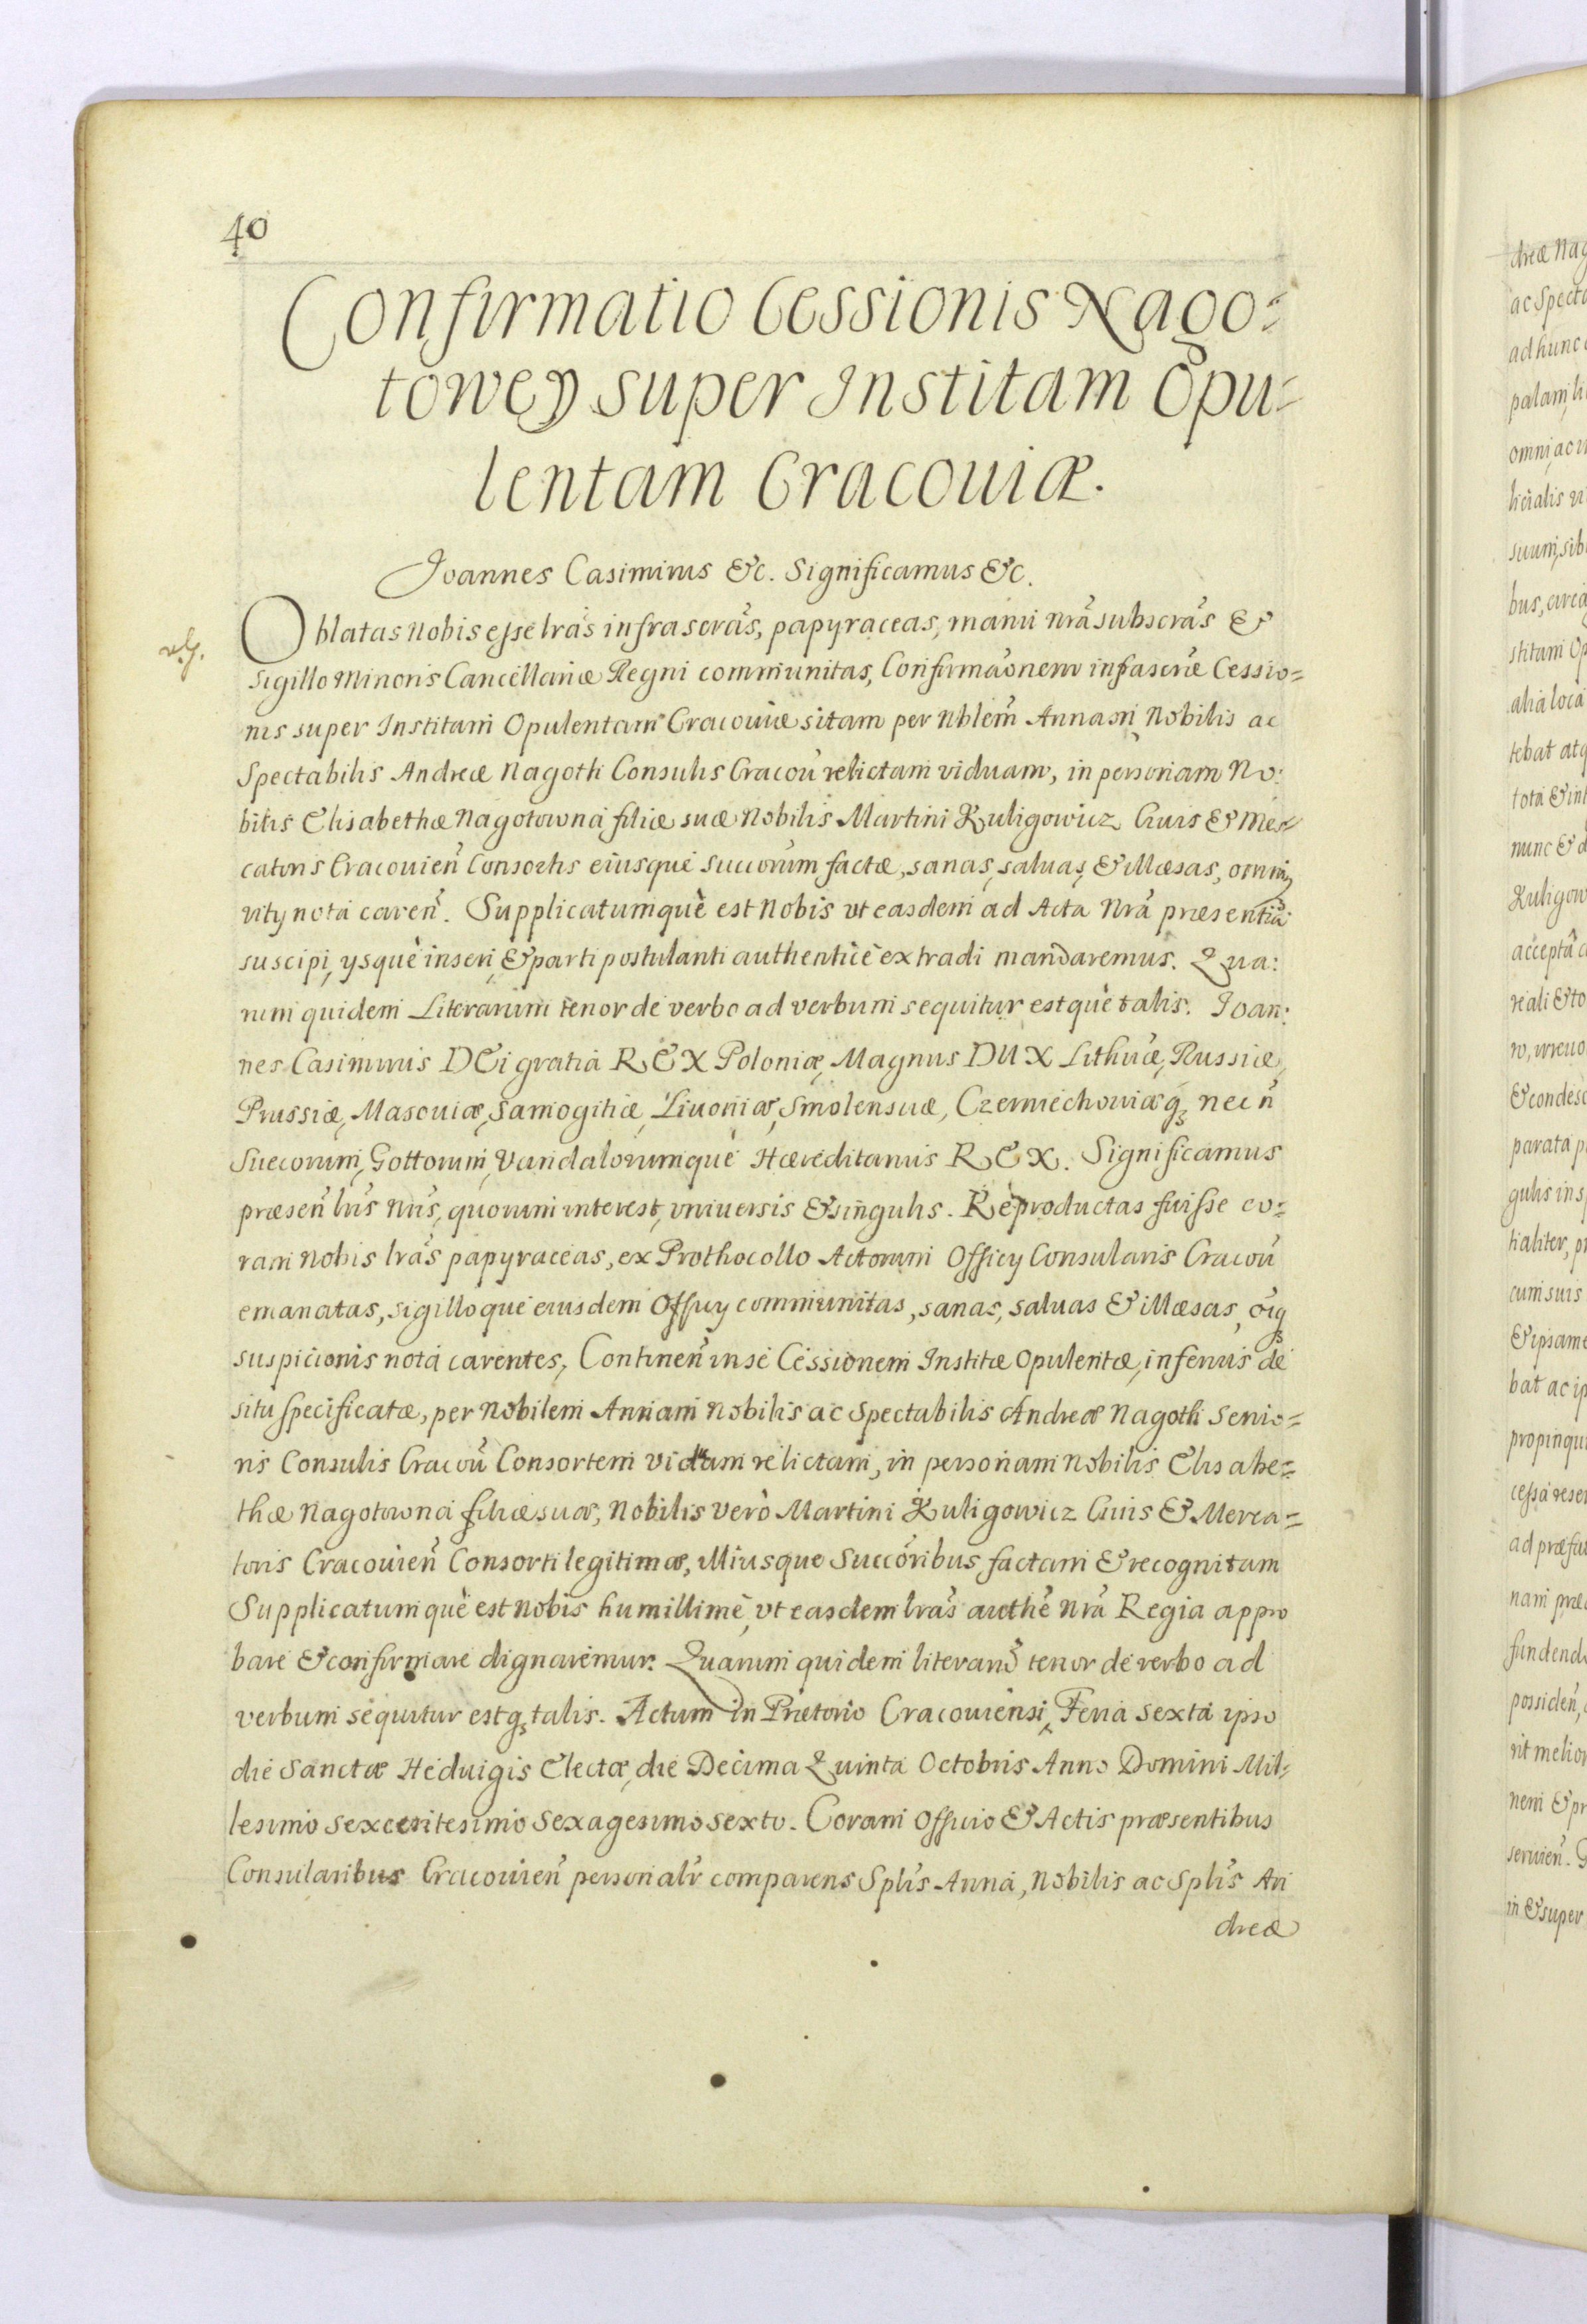 40
Confirmatio Cessionis Nago=
towey super Institam Opu=
lentam Cracouiæ.
Joannes Casimirus &c. Significamus &c.
Oblatas Nobis esse lrãs infrascrãs, papyraceas, manu nrã subscrãs &
sigillo Minoris Cancellariæ Regni communitas, Confirmãonem infascræ Cessio=
nis super Institam Opulentam Cracouiæ sitam per Nblem̃ Annam, Nobilis ac
Spectabilis Andreæ Nagoth Consulis Cracou̇ relictam viduam, in personam No:
bilis Elisabethæ Nagotowna filiæ suæ Nobilis Martini Kuligowicz Ciuis & Mer=
catoris Cracouien̄ Consortis eiusque succorum factæ, sanas, saluas, & illæsas, omni,
vity nota caren̄. Supplicatumquè est Nobis vt easdem ad Acta Nrã præsentiã
suscipi, ysquè inseri, & parti postulanti authenticè extradi mandaremus. Qua:
rum quidem Literarum tenor de verbo ad verbum sequitur estquè talis. Joan:
nes Casimirus DEi gratia REX Poloniæ, Magnus DUX Lithuæ, Russiæ,
Prussiæ, Masouiæ, Samogitiæ, Liuoniæ, Smolensciæ, Czerniechouiæq̃ nec n̄
Suecorum, Gottorum, Vandalorumquè Hæreditarius REX. Significamus
præsen̄ lrĩs Nrĩs, quorum interest, vniuersis & singulis. Reproductas fuisse co=
ram Nobis lrãs papyraceas, ex Prothocollo Actorum Officy Consularis Cracou̇
emanatas, sigilloque eiusdem Officy communitas, sanas, saluas & illæsas, oĩq
suspicionis nota carentes, Continen̄ in se Cessionem Institæ Opulentæ, inferius de
situ specificatæ, per Nobilem Annam Nobilis ac Spectabilis Andreæ Nagoth Senio=
ris Consulis Cracou̇ Consortem viduam relictam, in personam Nobilis Elisabe=
thæ Nagotowna filiæ suæ, Nobilis verò Martini Kuligowicz Ciuis & Merca=
toris Cracouien̄ Consorti legitimæ, illiusque Succoribus factam & recognitam
Supplicatumquè est Nobis humillimè, vt easdem lrãs authẽ Nrã Regia appro
bare & confirmare dignaremur. Quarum quidem literarũ tenor de verbo ad
verbum sequitur estq̃ talis. Actum in Prætorio Cracouiensi, Feria sexta ipso
die Sanctæ Heduigis Electæ, die Decima Quinta Octobris Anno Domini Mil=
lesimo Sexcentesimo Sexagesimo sexto. Coram Officio & Actis præsentibus
Consularibus Cracouien̄ personalr̃ comparens Splĩs Anna, Nobilis ac Splĩs An
dreæ